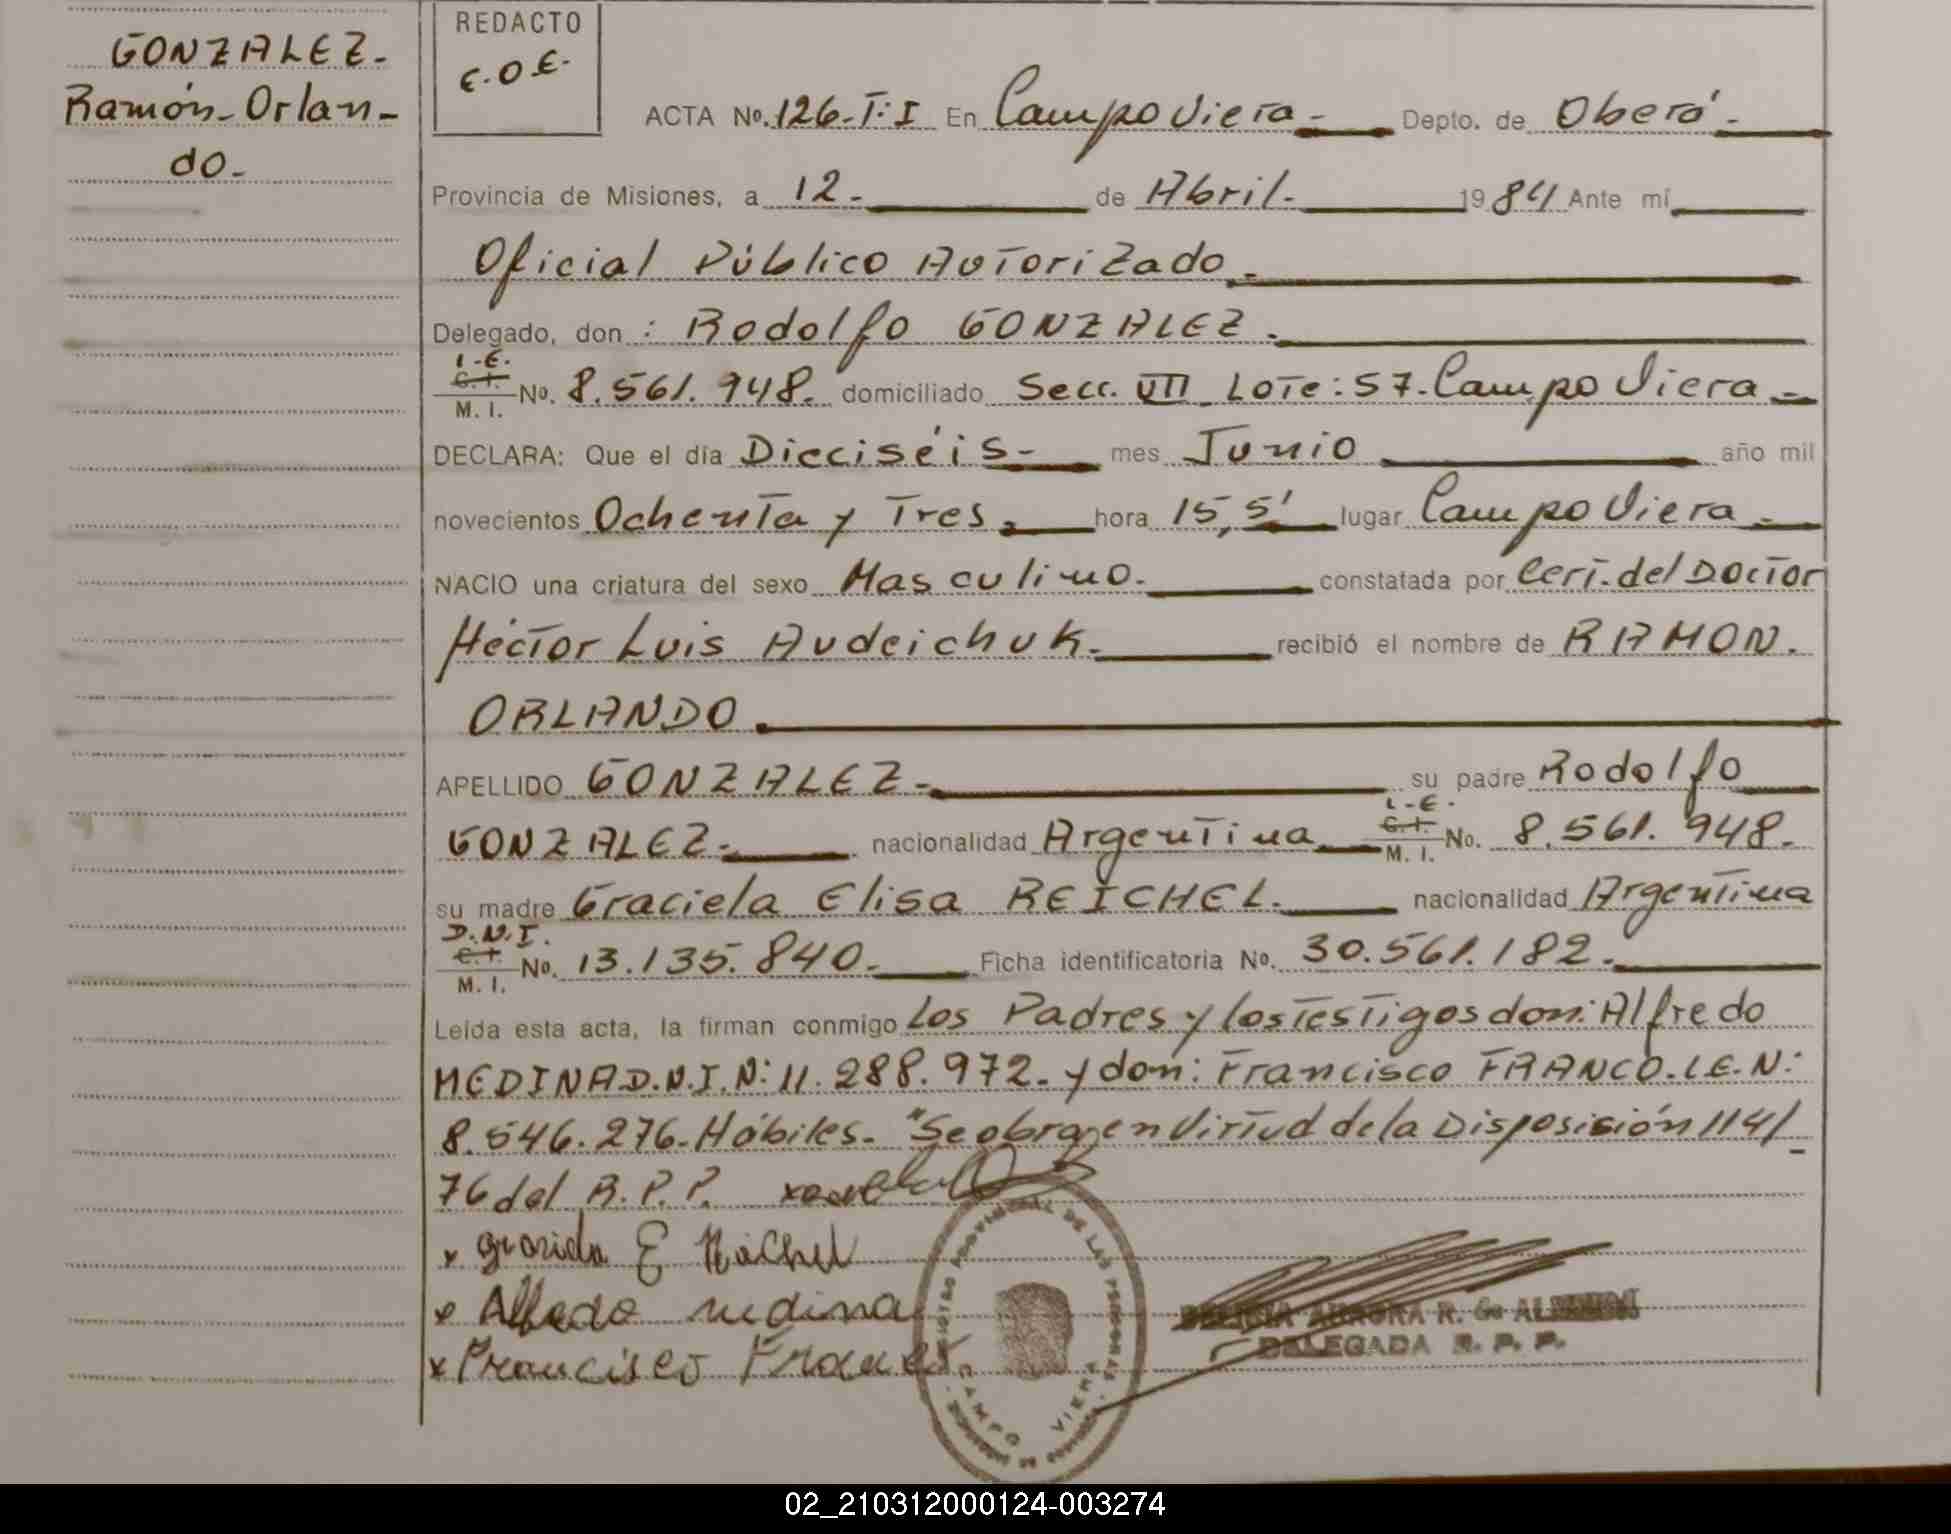 GONZALEZ-
Ramón-Orlan-
do.
REDACTO
E.O.E.
ACTA No. 126-T:I En Campo Viera- Depto. de Oberá-
Provincia de Misiones, a 12- de Abril. 1984 Ante mí
Oficial Público Autorizado.
Delegado, don: Rodolfo GONZALEZ.
L.E.
C.I.
M. I.
No. 8.561.948. domiciliado Secc. VII Lote: 57. Campo Viera-
DECLARA: Que el día Dieciséis- mes Junio año mil
novecientos Ochenta y Tres. hora 15,5' lugar Campo Viera-
NACIO una criatura del sexo Masculino. constatada por Cert. del Doctor
Héctor Luis Audeichuk. recibió el nombre de RAMON.
ORLANDO.
APELLIDO GONZALEZ- su padre Rodolfo
GONZALEZ- nacionalidad Argentina
L-E.
C.I.
M. I.
No. 8.561.948.
su madre Graciela Elisa REICHEL. nacionalidad Argentina
D.N.I.
C.I.
M. I.
No. 13.135.840- Ficha identificatoria No. 30.561.182.
Leída esta acta, la firman conmigo Los Padres y los Testigos don: Alfredo
MEDINA D.N.I.N: 11.288.972. y don: Francisco FRANCO. L.E.N:
8.546.276- Hábiles- "Se obra en Virtud de la Disposición 114/
76 del R.P.P.
x Graciela E Reichel
x Alfredo medina
x Francisco Franco
REGISTRO PROVINCIAL DE LAS PERSONAS
CAMPO VIERA
DELICIA AURORA R. G.
DELEGADA R. P. P.
02_210312000124-003274